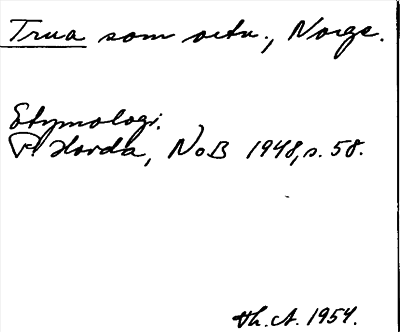 Trua som ortn., Norge.
Etymologi.
P. Hovda, NoB 1948, s. 58.
Th. A. 1954.